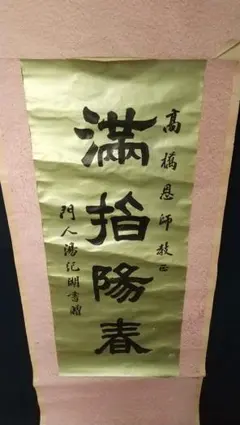 高橋恩師教正
滿拾陽春
門人湯紀湖書贈